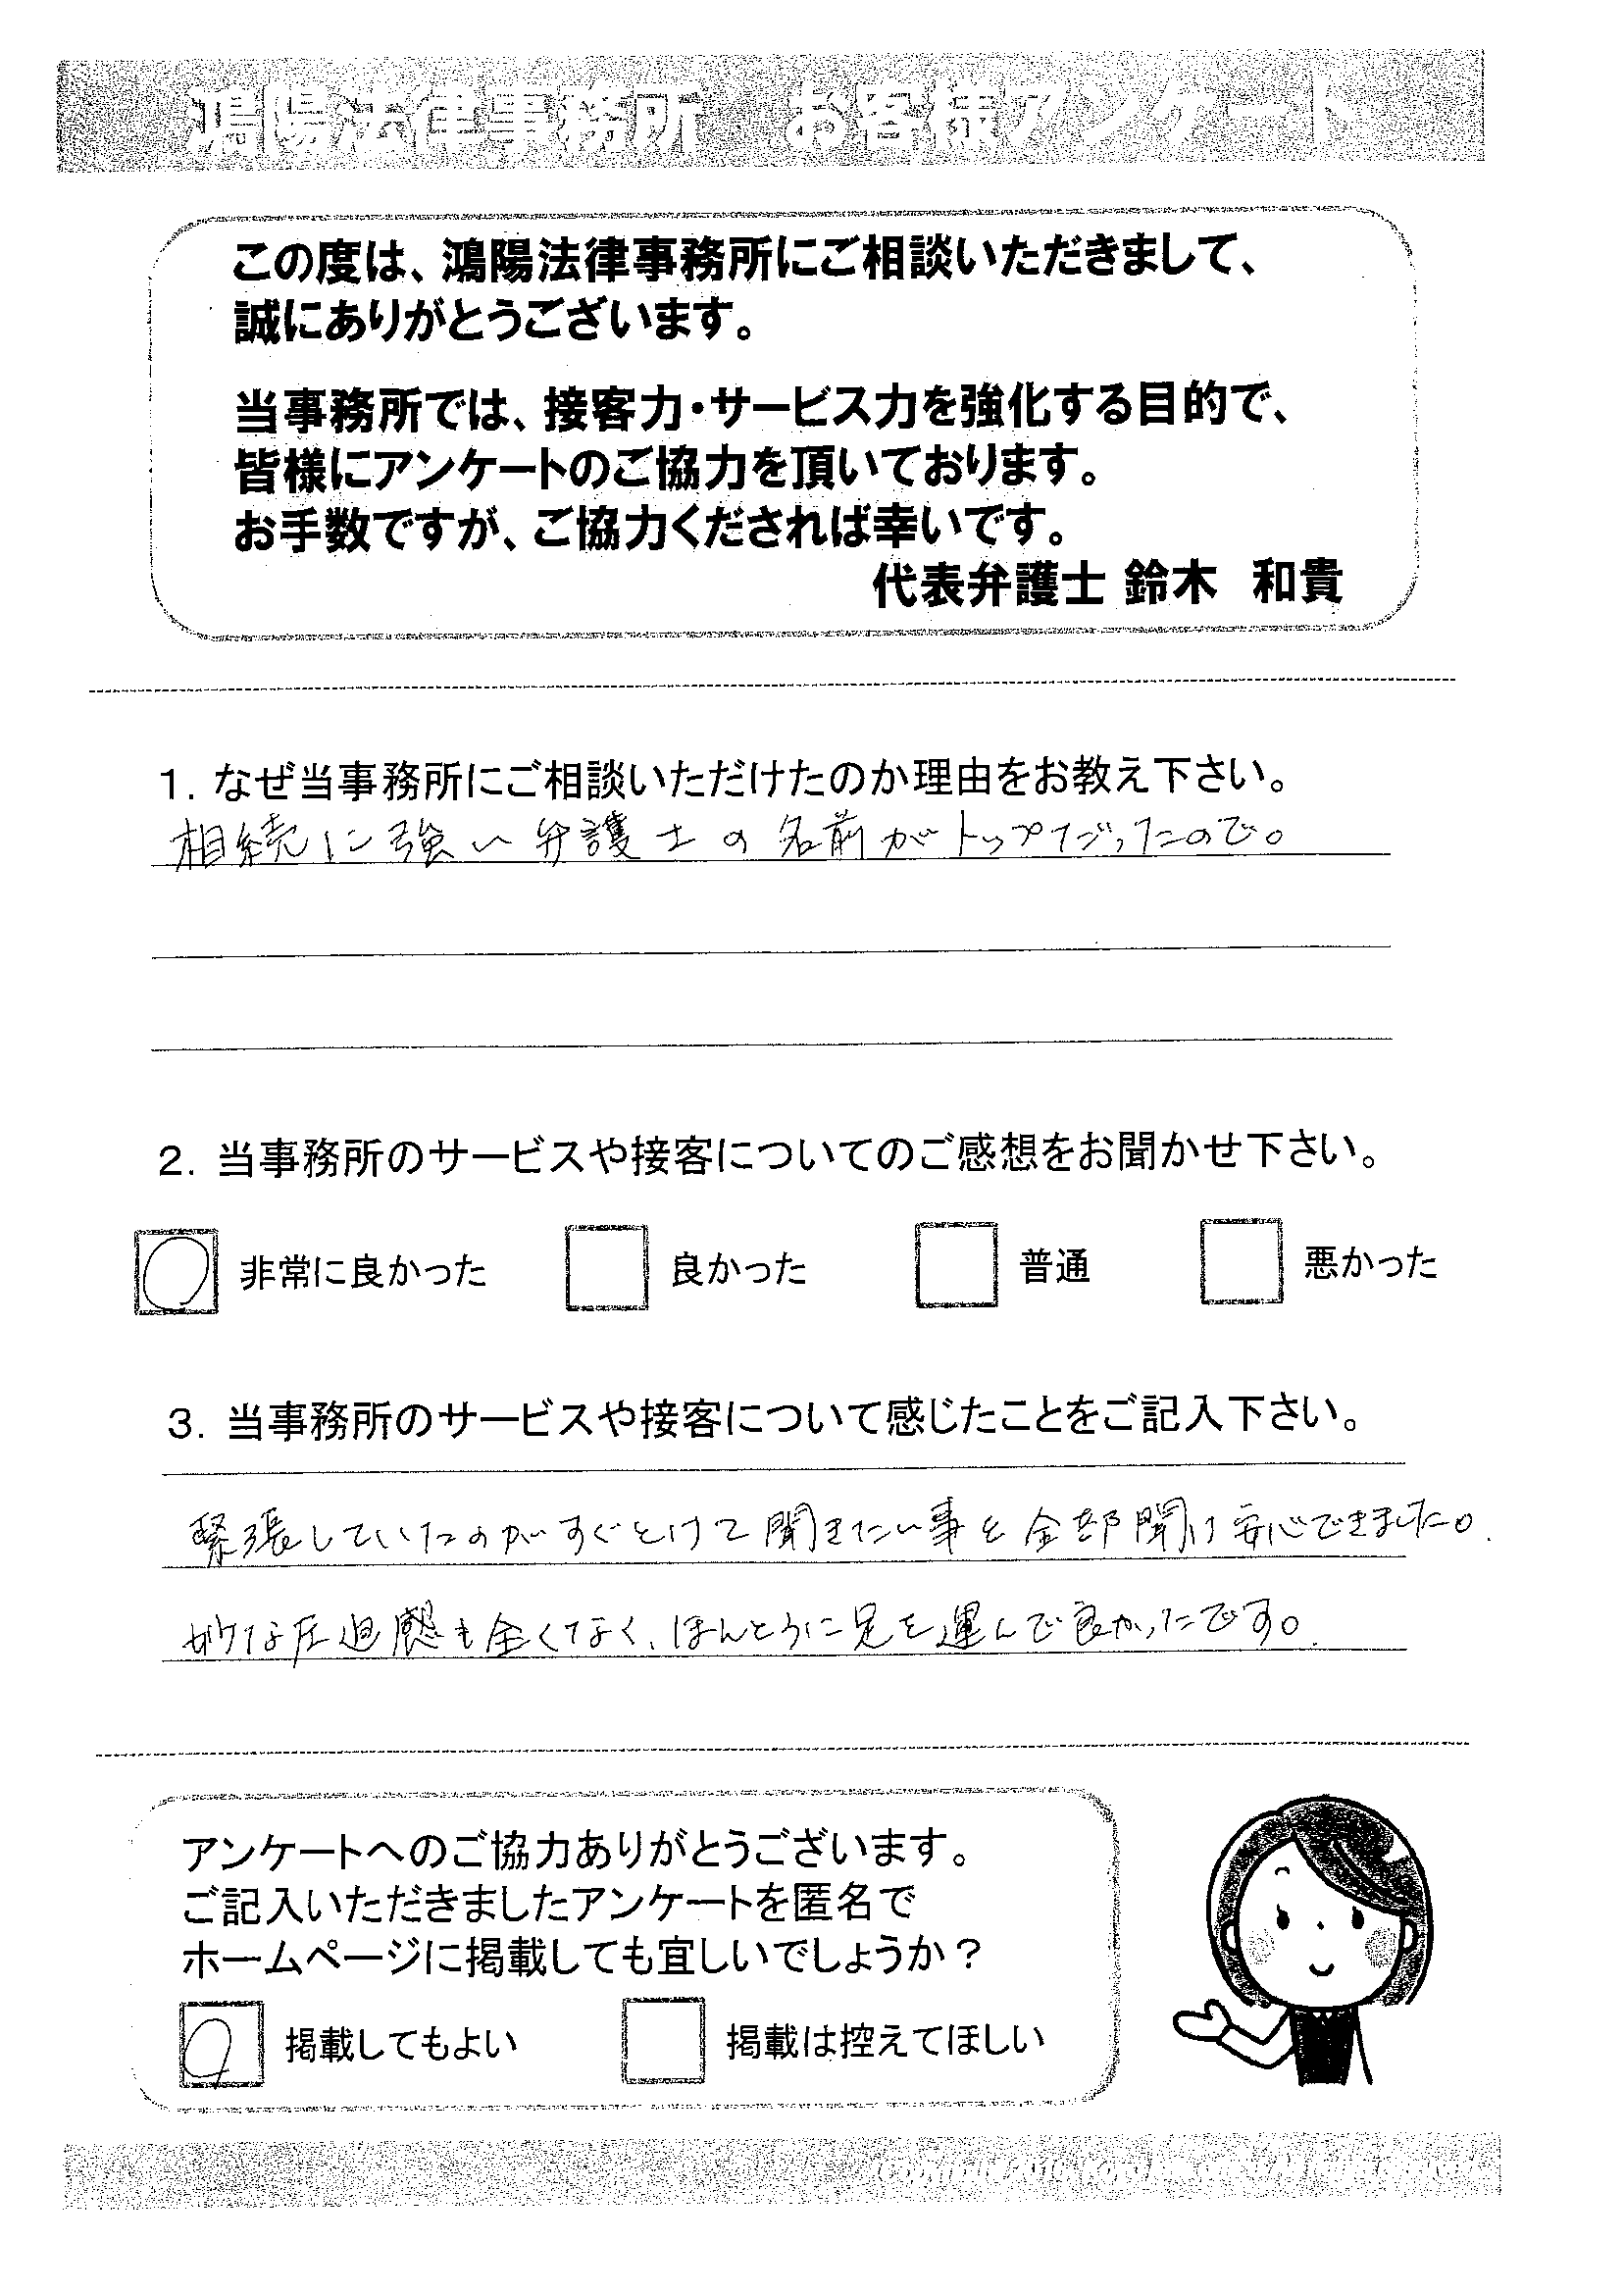 鴻陽法律事務所 お客様アンケート
この度は、鴻陽法律事務所にご相談いただきまして、
誠にありがとうございます。
当事務所では、接客力・サービス力を強化する目的で、
皆様にアンケートのご協力を頂いております。
お手数ですが、ご協力くだされば幸いです。
代表弁護士 鈴木 和貴
1. なぜ当事務所にご相談いただけたのか理由をお教え下さい。
相続に強い弁護士の名前がトップだったので。
2. 当事務所のサービスや接客についてのご感想をお聞かせ下さい。
非常に良かった 良かった 普通 悪かった
3. 当事務所のサービスや接客について感じたことをご記入下さい。
緊張していたのがすぐとけて聞きたい事を全部聞け安心できました。
妙な圧迫感も全くなく、ほんとうに足を運んで良かったです。
アンケートへのご協力ありがとうございます。
ご記入いただきましたアンケートを匿名で
ホームページに掲載しても宜しいでしょうか?
掲載してもよい 掲載は控えてほしい